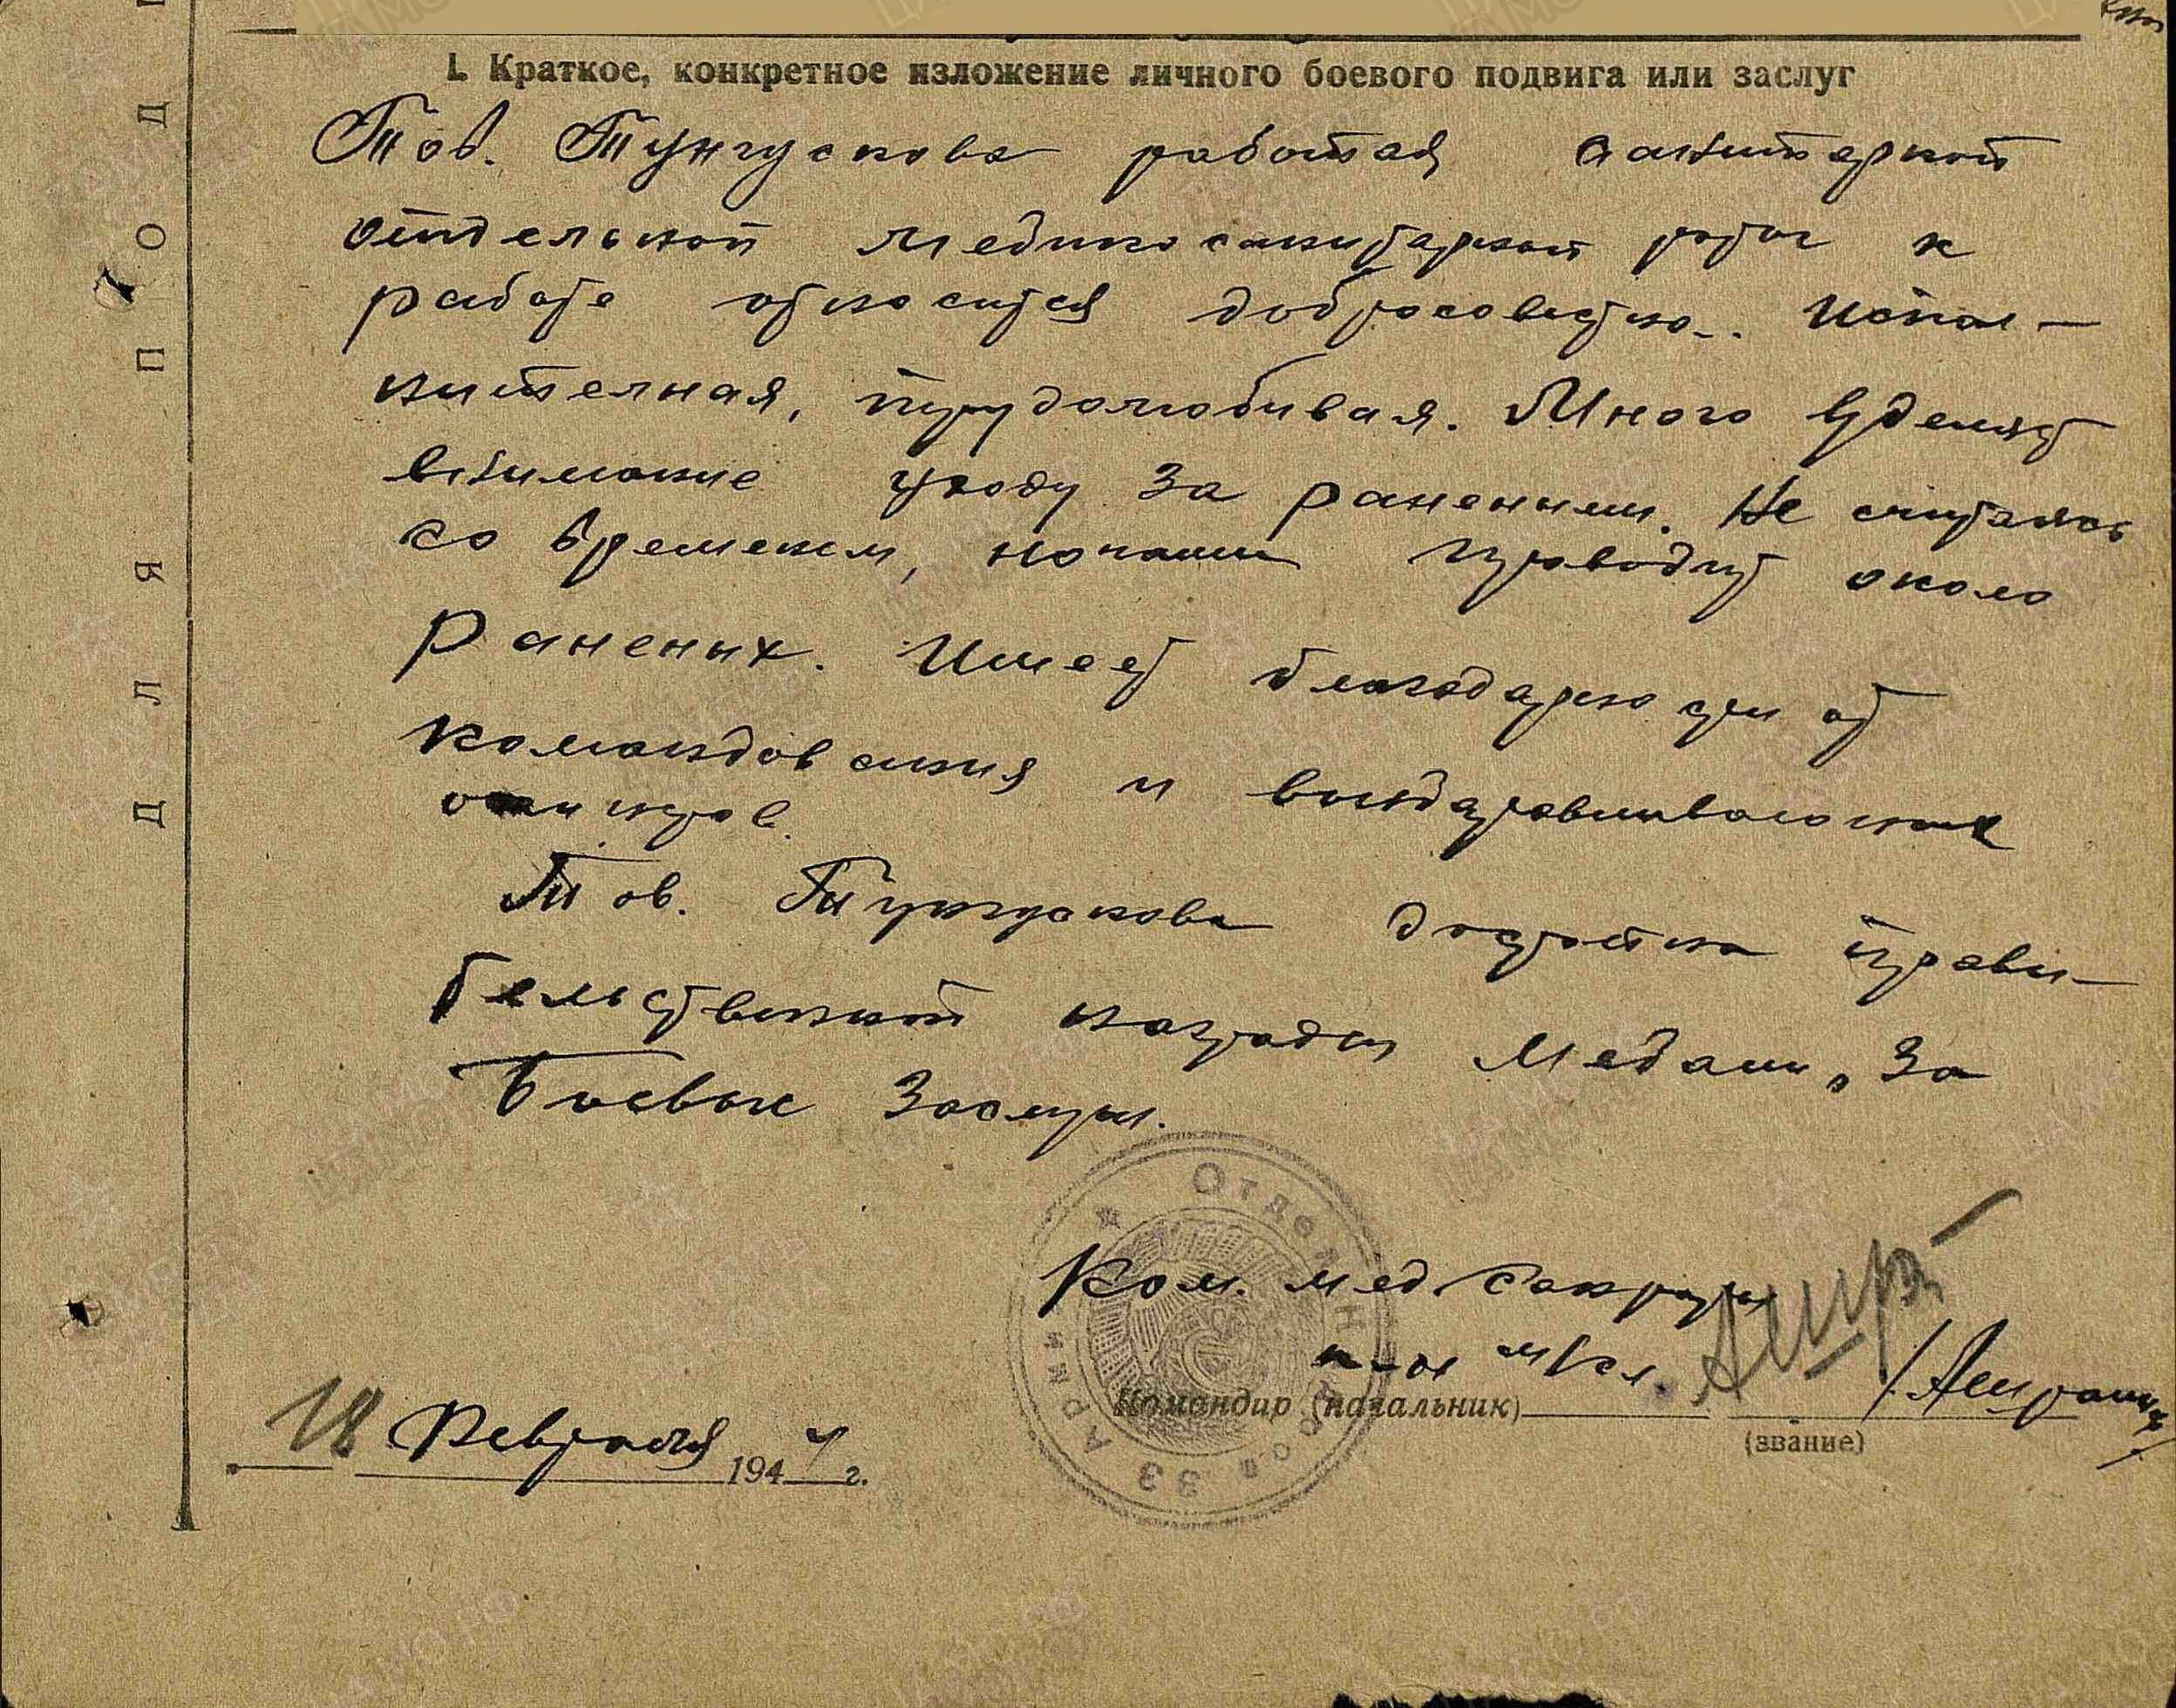 I. Краткое, конкретное изложение личного боевого подвига или заслуг
Тов. Тунгускова работая санитаркой
отдельной медикосанитарной роты к
работе относится добросовестно. Испол-
нителная, трудолюбивая. Много уделяет
внимание уходу за ранеными. Не считаясь
со временем, ночами проводит около
раненых. Имеет благодарности от
командования и выздоравливающих
Тов. Тунгускова достойна прави-
тельственной награды медали „За
Боевые Заслуги.
Ком. мед санроты
к-н м/сл.
Командир (начальник)
(звание)
18 Февраля 1944 г.
ДЛЯ ПОД
Отдельн
33 Армии